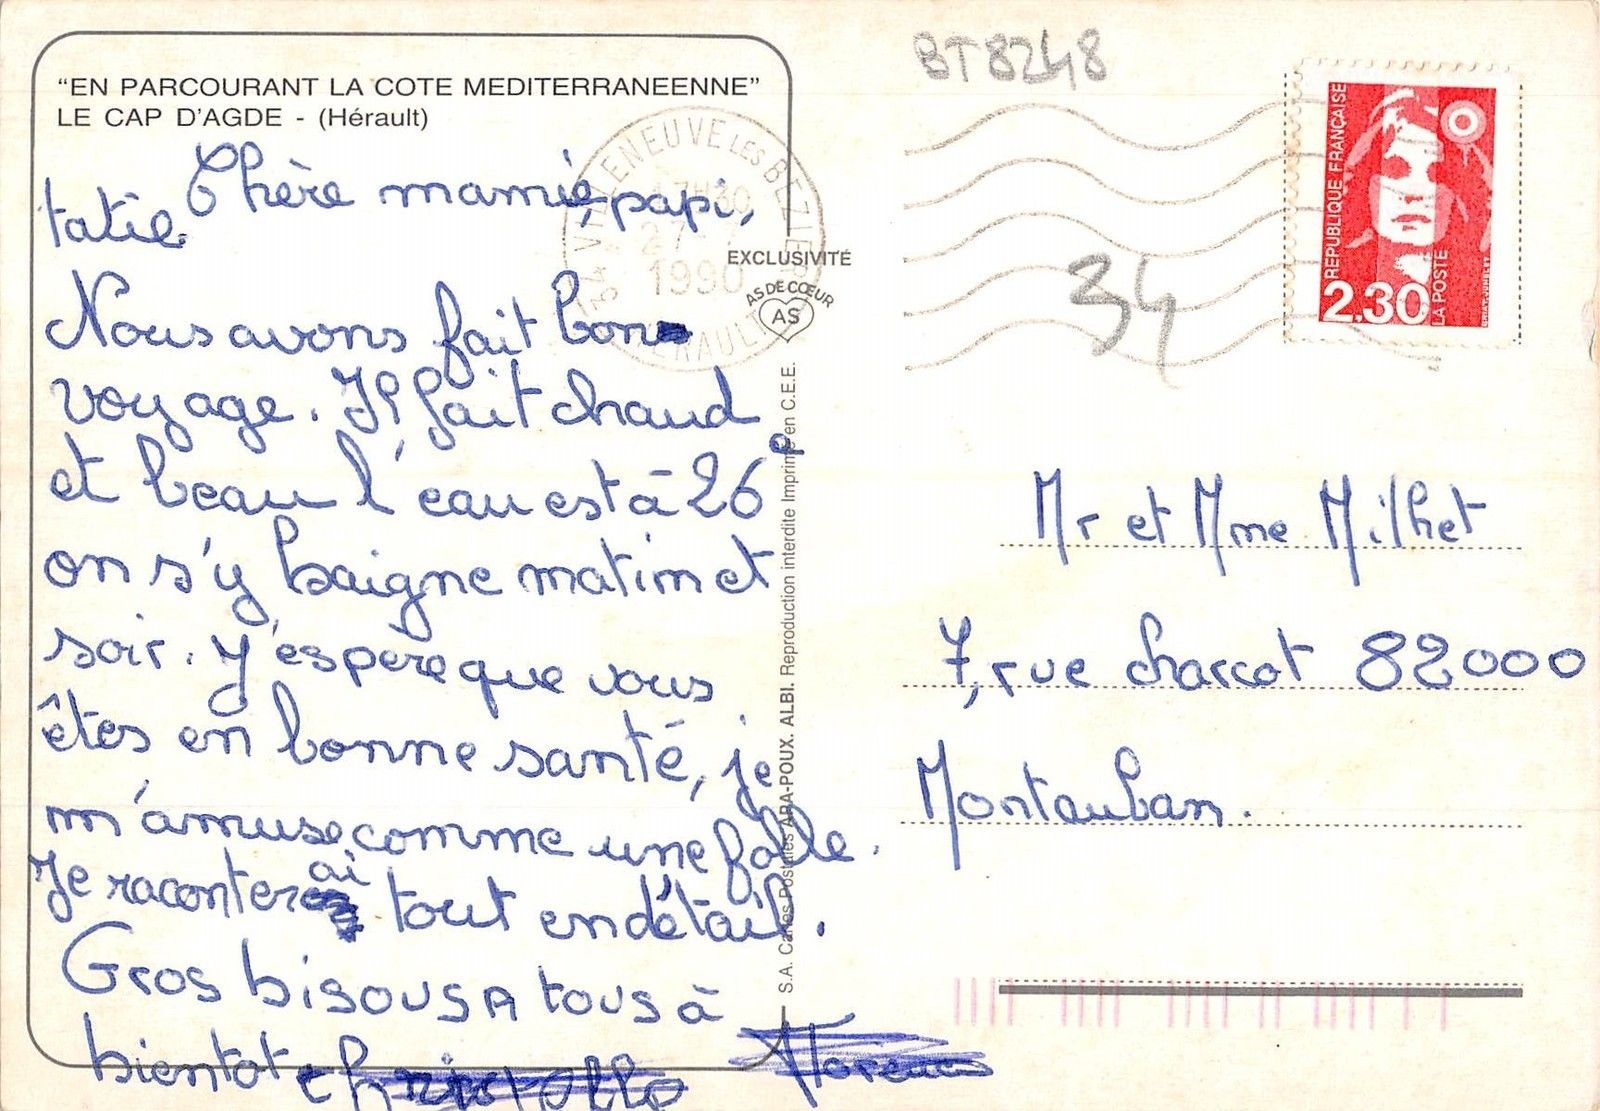 "EN PARCOURANT LA COTE MEDITERRANEENNE"
LE CAP D'AGDE - (Hérault)
Chère mamie, papi,
tatie.
Nous avons fait bon
voyage. Il fait chaud
et beau l'eau est à 26°
on s'y baigne matin et
soir. J'éspère que vous
êtes en bonne santé, je
m'amuse comme une folle.
Je raconterai tout en détail.
Gros bisous A tous à
bientot
EXCLUSIVITÉ
AS DE CŒUR
AS
S.A. Cartes Postales ARA-POUX. ALBI. Reproduction interdite Imprimé en C.E.E.
34 VILLENEUVE LES BEZIERS
17H30
27
1990
HERAULT
BT8248
34
RÉPUBLIQUE FRANÇAISE
2.30
LA POSTE
Mr et Mme Milhet
7, rue charcot 82000
Montauban.